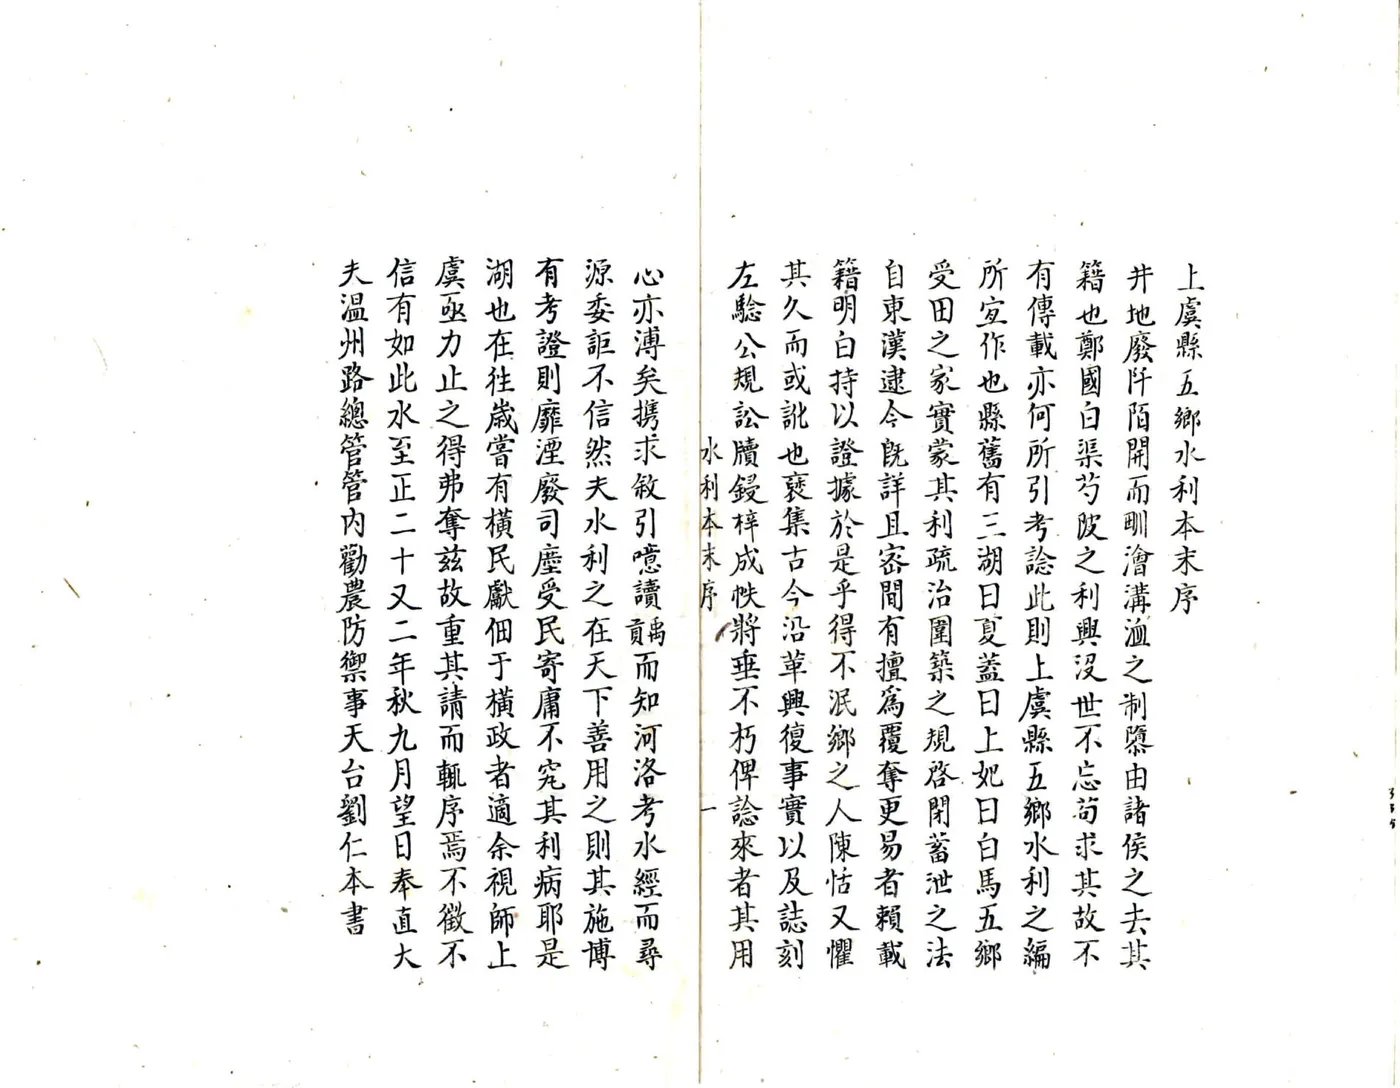 上虞縣五鄉水利本末序
井地廢阡陌開而甽澮溝洫之制隳由諸侯之去其
籍也鄭國白渠芍陂之利興沒世不忘苟求其故不
有傳載亦何所引考諗此則上虞縣五鄉水利之編
所宜作也縣舊有三湖曰夏蓋曰上妃曰白馬五鄉
受田之家實蒙其利疏治圍築之規啓閉蓄泄之法
自東漢逮今旣詳且宻間有擅爲覆奪更易者賴載
籍明白持以證據於是乎得不泯鄉之人陳恬又懼
其久而或訛也裒集古今沿革興復事實以及誌刻
左驗公規訟牘鋟梓成帙將垂不朽俾諗來者其用
水利本末序
一
心亦溥矣携求敘引噫讀禹貢而知河洛考水經而尋
源委詎不信然夫水利之在天下善用之則其施博
有考證則靡湮廢司塵受民寄庸不究其利病耶是
湖也在往歲嘗有橫民獻佃于橫政者適余視師上
虞亟力止之得弗奪茲故重其請而輒序焉不徵不
信有如此水至正二十又二年秋九月望日奉直大
夫温州路總管管內勸農防禦事天台劉仁本書